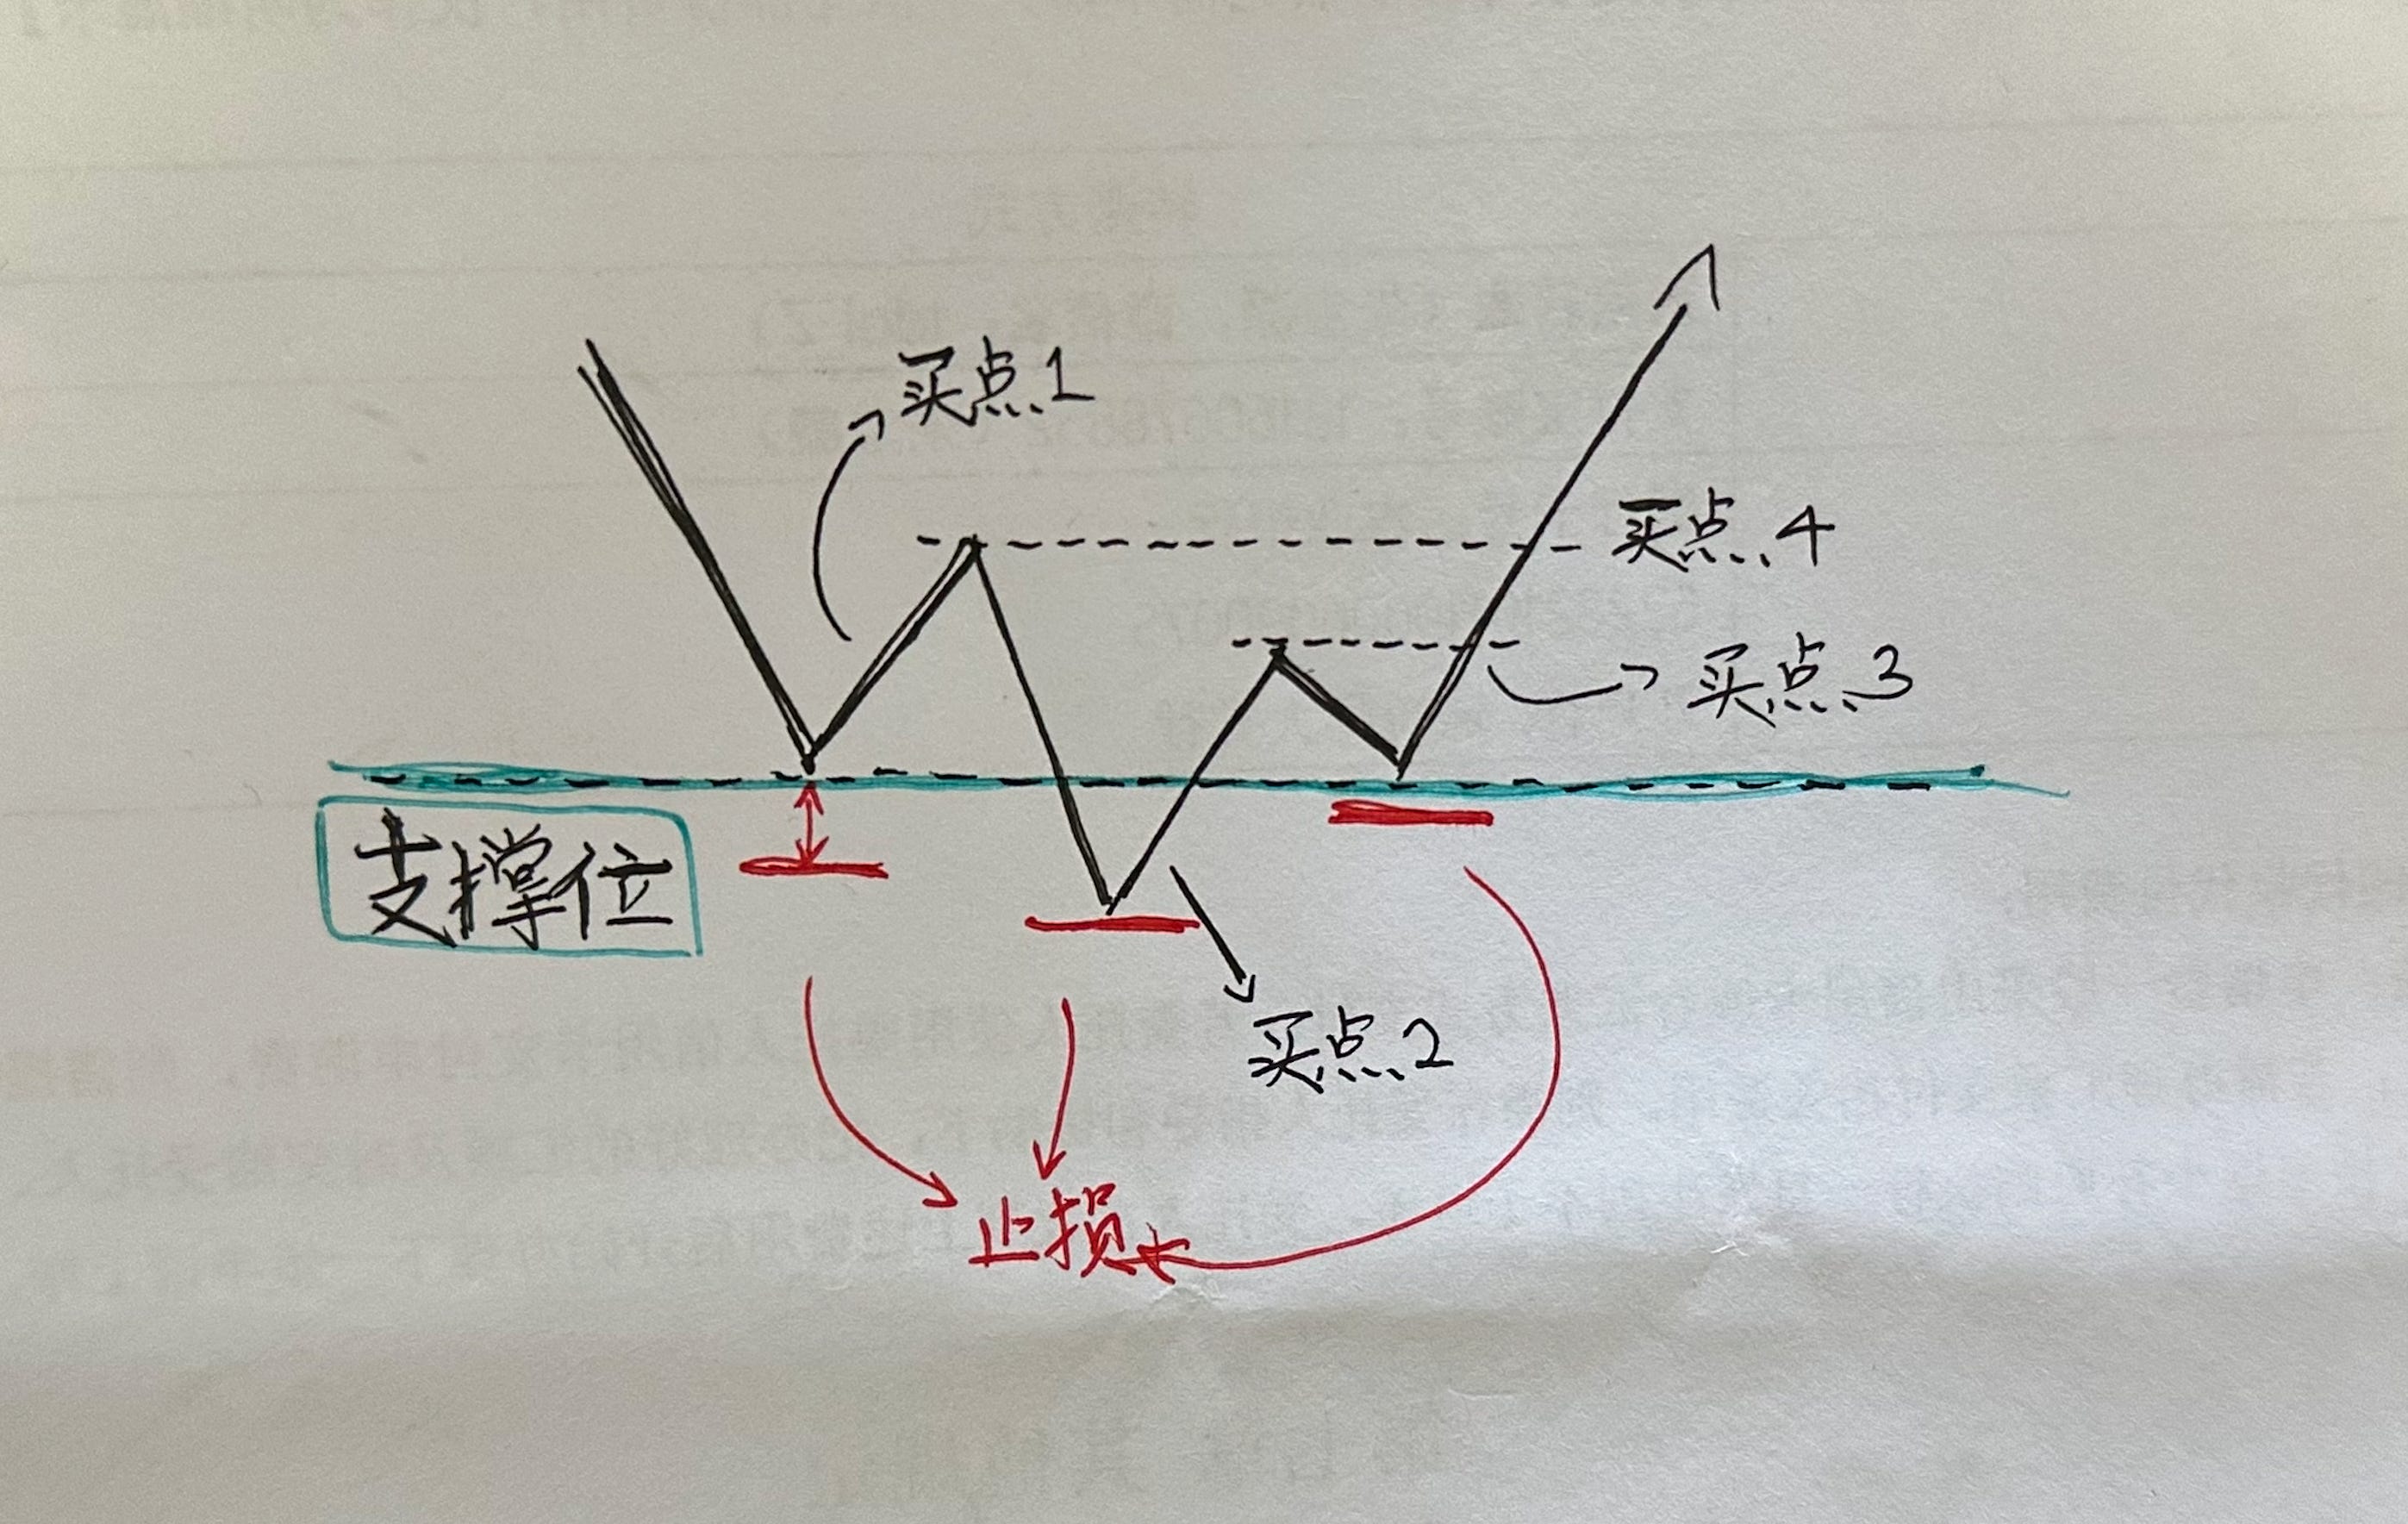 买点1
买点4
买点3
支撑位
买点2
止损